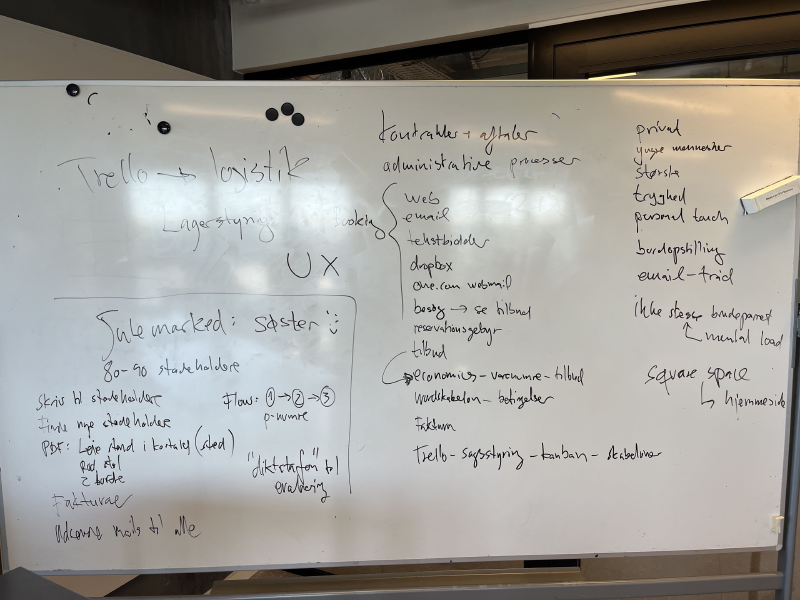 Trello → logistik
Lagerstyring
UX
Julemarked: søster
80-90 stadeholdere
Skriv til stadeholdere
Finde nye stadeholdere
PDF: Leje stand i kataly (sted)
Rød stol
2 borde
Fakturae
mails til alle
Flow: 1 → 2 → 3
p-numre
"diktatorfon" til
evaluering
Kontrakter + aftaler
administrative processer
Booking
web
email
tekstbidder
dropbox
one.com webmail
besøg → se tilbud
reservationsgebyr
tilbud
economics - varenumre - tilbud
- betingelser
Faktura
Trello - sagsstyring - kanban - skabeloner
privat
yngre mennesker
største
tryghed
personal touch
bordopstilling
email-tråd
ikke stesse brudeparret
mental load
square space
hjemmeside